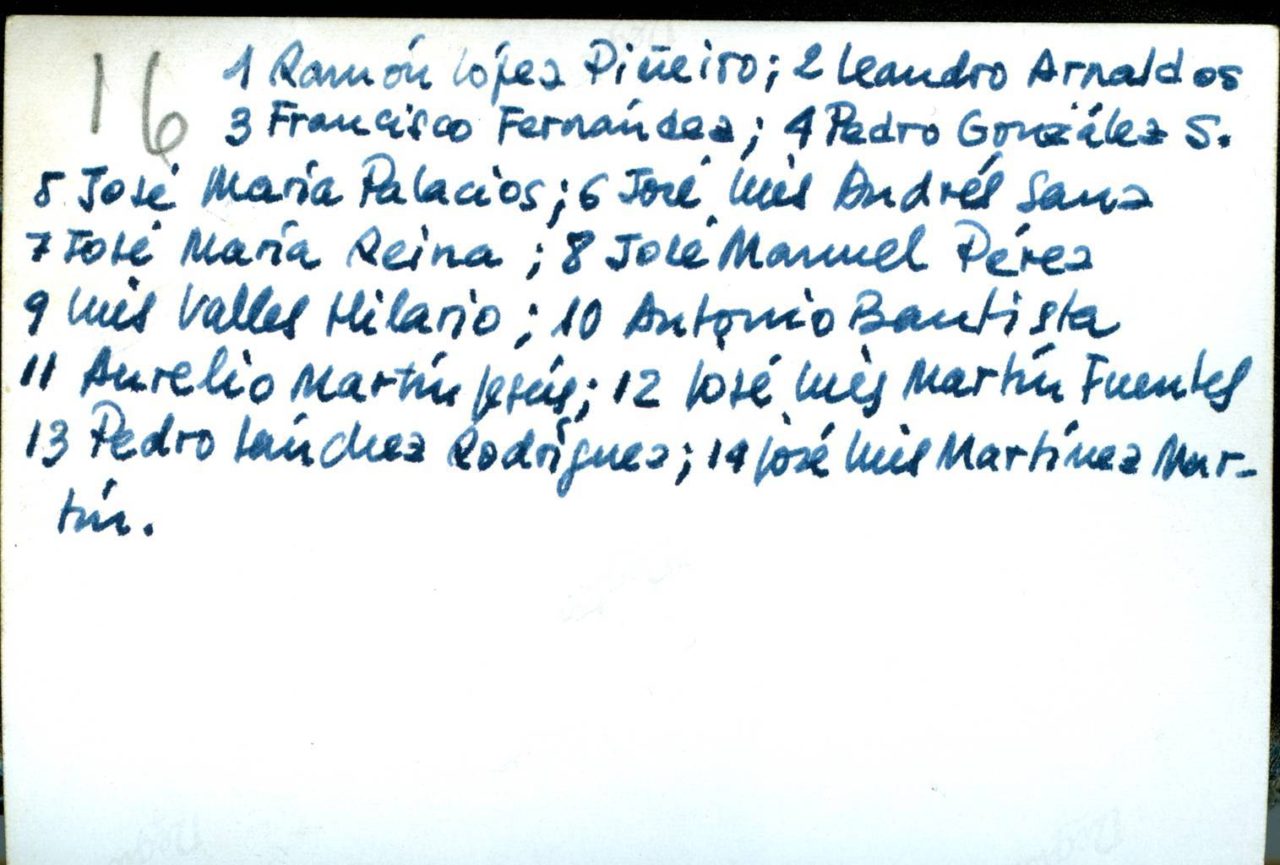 16
1 Ramón López Piñeiro; 2 Leandro Arnaldos
3 Francisco Fernández; 4 Pedro González S.
5 José María Palacios; 6 José Luis Andrés Sanz
7 José María Reina; 8 José Manuel Pérez
9 Luis Valles Hilario; 10 Antonio Bautista
11 Aurelio Martín Jesús; 12 José Luis Martín Fuentes
13 Pedro Sánchez Rodríguez; 14 José Luis Martínez Mar-
tín.